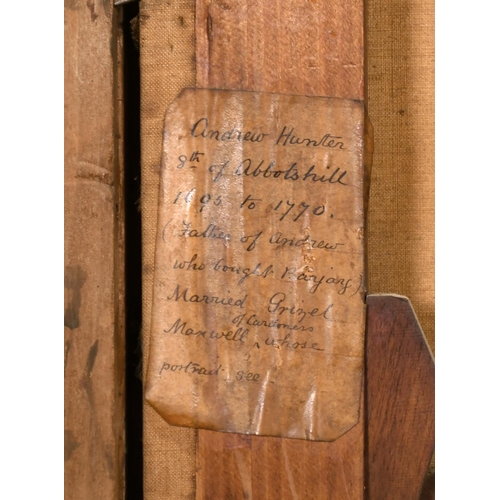 Andrew Hunter
8th of Abbotshill
1695 to 1770.
(Father of Andrew
who bought Barjarg)
Married Grizel
of Cardness
Maxwell ^ whose
portrait see